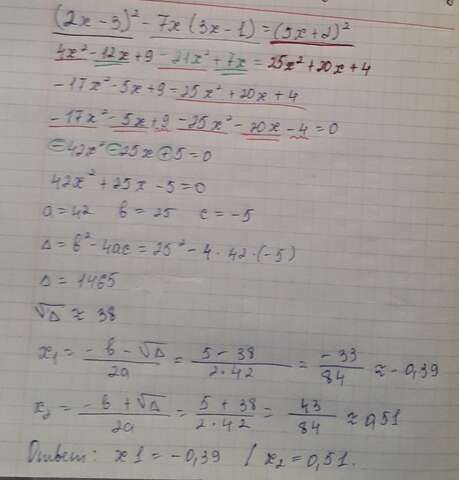 (2x - 3)² - 7x(3x - 1) = (5x + 2)²
4x² - 12x + 9 - 21x² + 7x = 25x² + 20x + 4
-17x² - 5x + 9 = 25x² + 20x + 4
-17x² - 5x + 9 - 25x² - 20x - 4 = 0
⊖42x² ⊖25x ⊕5 = 0
42x² + 25x - 5 = 0
a = 42 b = 25 c = -5
Δ = b² - 4ac = 25² - 4 · 42 · (-5)
Δ = 1465
√Δ ≈ 38
x₁ = (-b - √Δ)/2a = (5 - 38)/(2 · 42) = -33/84 ≈ -0,39
x₂ = (-b + √Δ)/2a = (5 + 38)/(2 · 42) = 43/84 ≈ 0,51
Ответ: x1 = -0,39 / x₂ = 0,51.